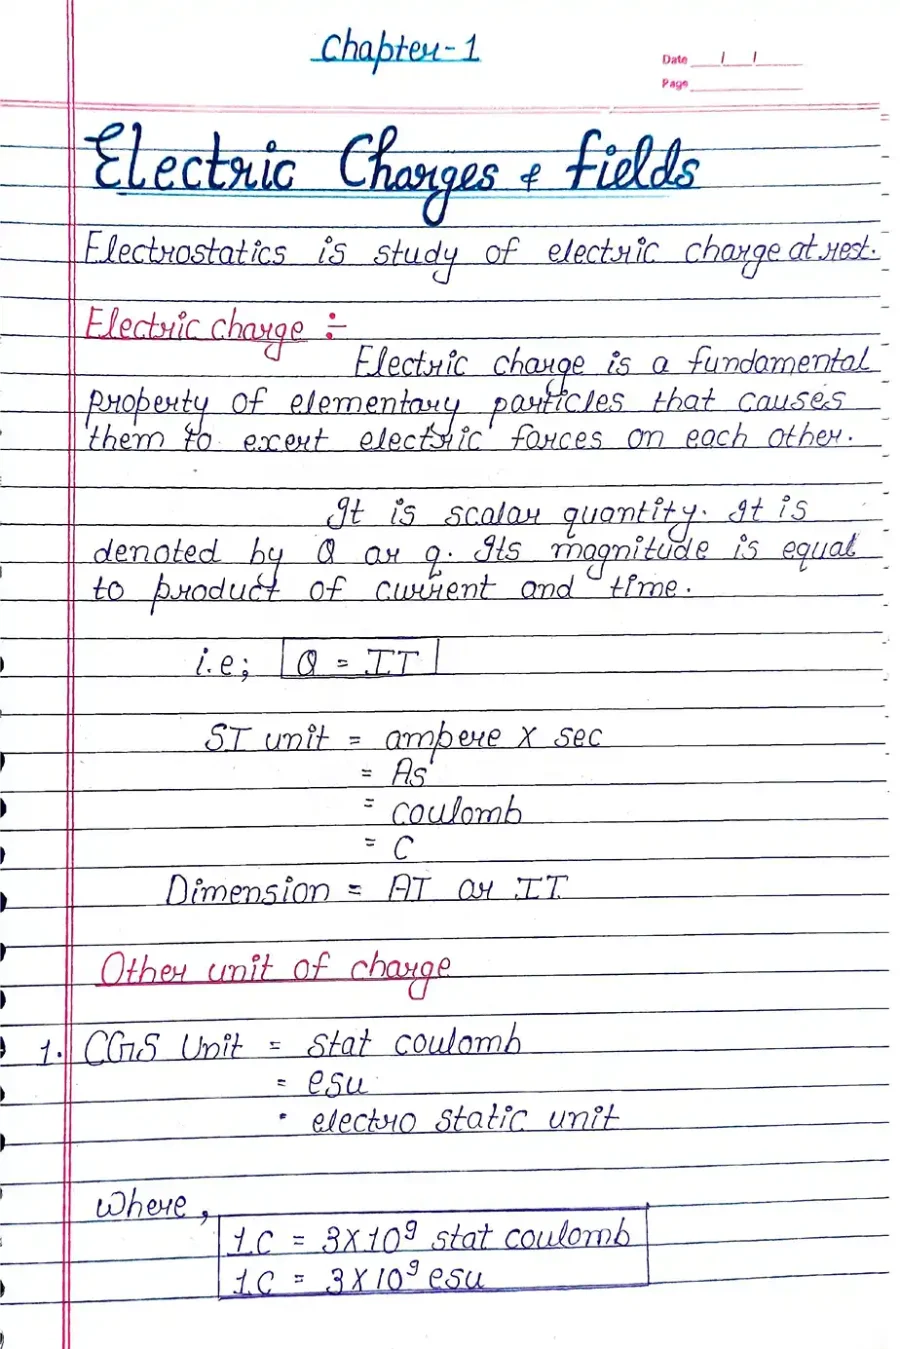 Chapter-1
Date / /
Page
Electric Charges & fields
Electrostatics is study of electric charge at rest.
Electric charge :-
Electric charge is a fundamental
property of elementary particles that causes
them to exert electric forces on each other.
It is scalar quantity. It is
denoted by Q or q. Its magnitude is equal
to product of current and time.
i.e; Q = IT
SI unit = ampere X sec
= As
= coulomb
= C
Dimension = AT or IT
Other unit of charge
1. CGS Unit = stat coulomb
= esu
• electro static unit
where,
1C = 3X10⁹ stat coulomb
1C = 3X10⁹ esu